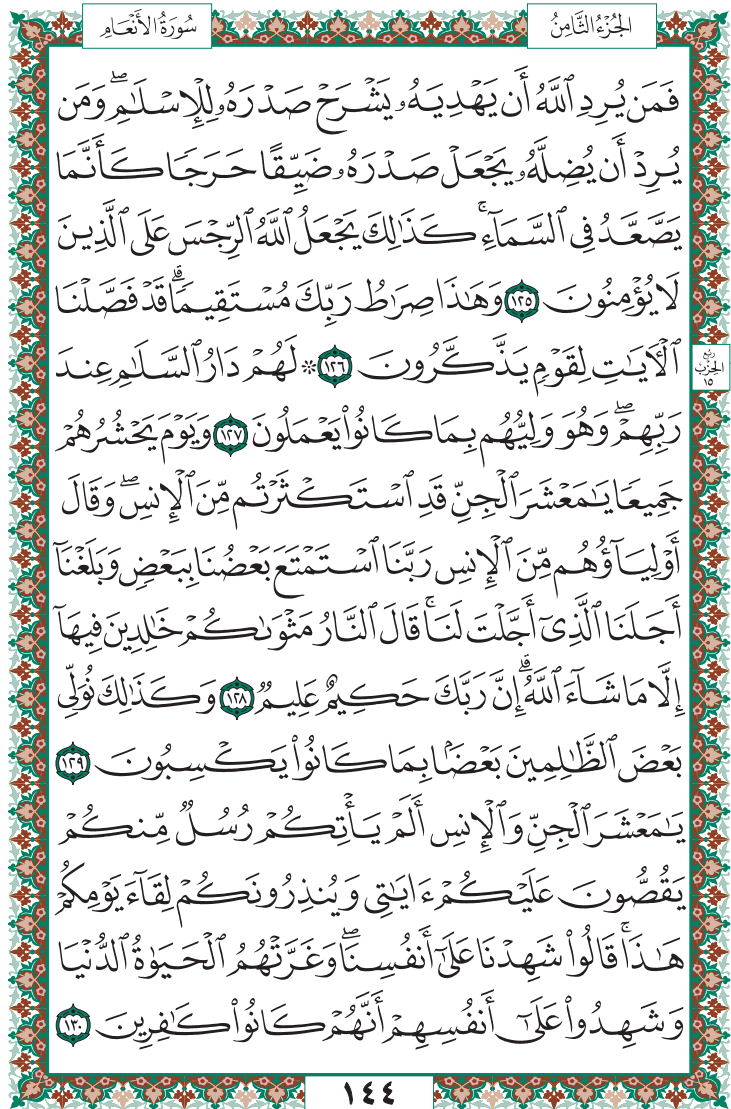 الجُزْءُ الثَّامِنُ
سُورَةُ الأَنْعَامِ
فَمَن يُرِدِ ٱللَّهُ أَن يَهْدِيَهُۥ يَشْرَحْ صَدْرَهُۥ لِلْإِسْلَٰمِۖ وَمَن
يُرِدْ أَن يُضِلَّهُۥ يَجْعَلْ صَدْرَهُۥ ضَيِّقًا حَرَجًا كَأَنَّمَا
يَصَّعَّدُ فِي ٱلسَّمَآءِۚ كَذَٰلِكَ يَجْعَلُ ٱللَّهُ ٱلرِّجْسَ عَلَى ٱلَّذِينَ
لَا يُؤْمِنُونَ ١٢٥ وَهَٰذَا صِرَٰطُ رَبِّكَ مُسْتَقِيمًاۗ قَدْ فَصَّلْنَا
ٱلْأٓيَٰتِ لِقَوْمٍ يَذَّكَّرُونَ ١٢٦ ۞ لَهُمْ دَارُ ٱلسَّلَٰمِ عِندَ
رَبِّهِمْۖ وَهُوَ وَلِيُّهُم بِمَا كَانُوا۟ يَعْمَلُونَ ١٢٧ وَيَوْمَ يَحْشُرُهُمْ
جَمِيعًا يَٰمَعْشَرَ ٱلْجِنِّ قَدِ ٱسْتَكْثَرْتُم مِّنَ ٱلْإِنسِۖ وَقَالَ
أَوْلِيَآؤُهُم مِّنَ ٱلْإِنسِ رَبَّنَا ٱسْتَمْتَعَ بَعْضُنَا بِبَعْضٍ وَبَلَغْنَآ
أَجَلَنَا ٱلَّذِىٓ أَجَّلْتَ لَنَاۚ قَالَ ٱلنَّارُ مَثْوَىٰكُمْ خَٰلِدِينَ فِيهَآ
إِلَّا مَا شَآءَ ٱللَّهُۗ إِنَّ رَبَّكَ حَكِيمٌ عَلِيمٌ ١٢٨ وَكَذَٰلِكَ نُوَلِّى
بَعْضَ ٱلظَّٰلِمِينَ بَعْضًۢا بِمَا كَانُوا۟ يَكْسِبُونَ ١٢٩
يَٰمَعْشَرَ ٱلْجِنِّ وَٱلْإِنسِ أَلَمْ يَأْتِكُمْ رُسُلٌ مِّنكُمْ
يَقُصُّونَ عَلَيْكُمْ ءَايَٰتِى وَيُنذِرُونَكُمْ لِقَآءَ يَوْمِكُمْ
هَٰذَاۚ قَالُوا۟ شَهِدْنَا عَلَىٰٓ أَنفُسِنَاۖ وَغَرَّتْهُمُ ٱلْحَيَوٰةُ ٱلدُّنْيَا
وَشَهِدُوا۟ عَلَىٰٓ أَنفُسِهِمْ أَنَّهُمْ كَانُوا۟ كَٰفِرِينَ ١٣٠
رُبع
الحِزْب
١٥
١٤٤